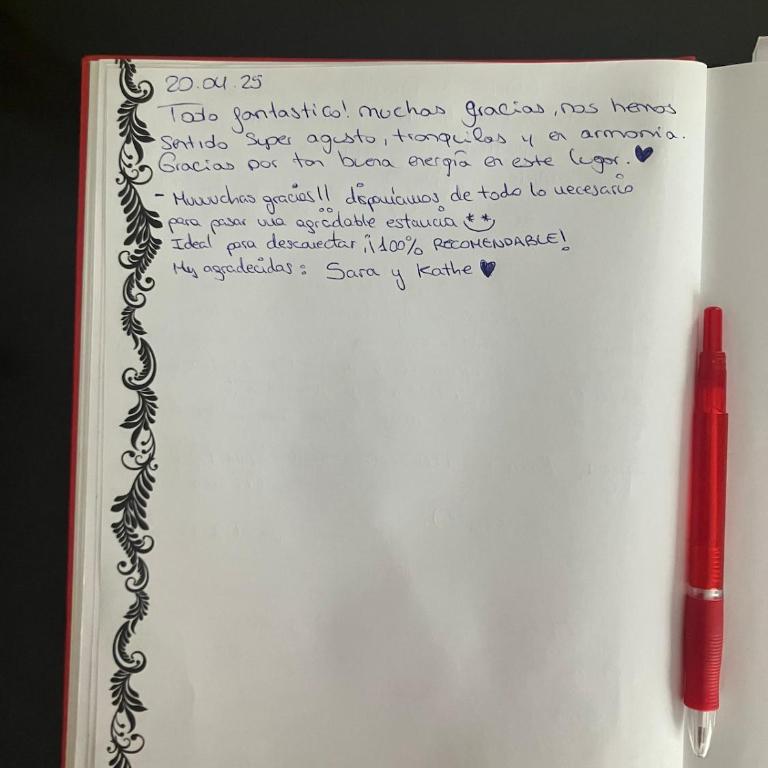 20.04.25
Todo fantastico! muchas gracias, nos hemos
sentido super agusto, tranquilas y en armonia.
Gracias por tan buena energía en este lugar. ♥
- Muuuchas gracias!! disponíamos de todo lo necesario
para pasar una agradable estancia
Ideal para desconectar ¡¡100% RECOMENDABLE!
My agradecidas: Sara y Kathe ♥